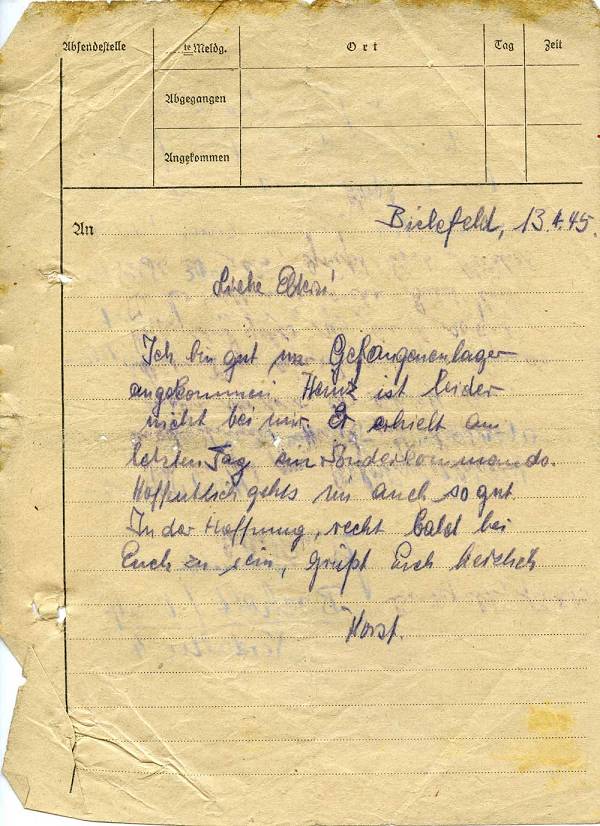 Absendestelle
te Meldg.
Ort
Tag
Zeit
Abgegangen
Angekommen
An
Bielefeld, 13.4.45.
Liebe Eltern!
Ich bin gut im Gefangenenlager
angekommen. Heinz ist leider
nicht bei mir. Er erhielt am
letzten Tag ein Sonderkommando.
Hoffentlich gehts ihm auch so gut.
In der Hoffnung, recht bald bei
Euch zu sein, grüßt Euch herzlich
Horst.